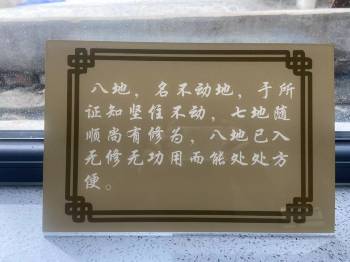 八地，名不动地，于所
证知坚住不动，七地随
顺尚有修为，八地已入
无修无功用而能处处方
便。